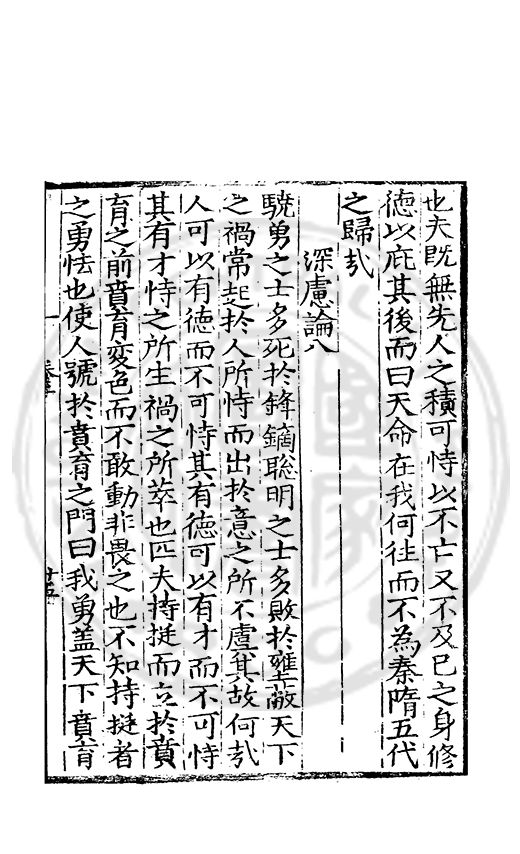 也夫既無先人之積可恃以不亡又不及已之身修
德以庇其後而曰天命在我何徃而不為秦隋五代
之歸㢤
深慮論八
驍勇之士多死於鋒鏑聡明之士多敗於壅蔽天下
之禍常起於人所恃而出於意之所不虞其故何㢤
人可以有德而不可恃其有德可以有才而不可恃
其有才恃之所生禍之所萃也匹夫持挺而立於賁
育之前賁育変色而不敢動非畏之也不知持挺者
之勇怯也使人號於賁育之門曰我勇盖天下賁育